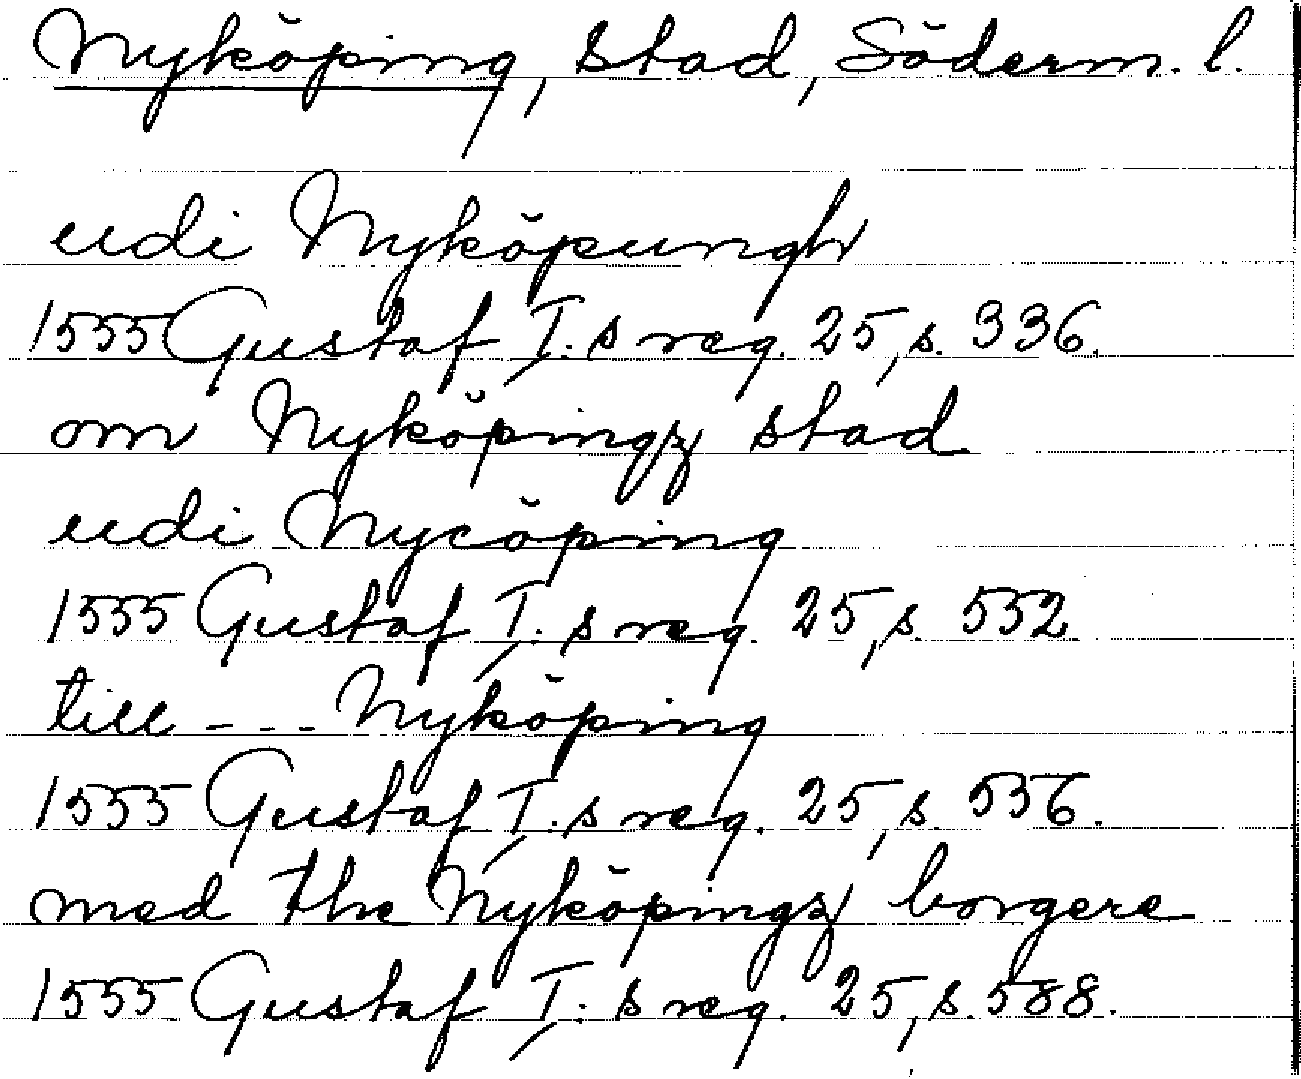 Nyköping, stad, Söderm. l.
udi Nyköpungh
1555 Gustaf I:s reg. 25, s. 336.
om Nyköpingz stad
udi Nycöping
1555 Gustaf I:s reg. 25, s. 552
till - - - Nyköping
1555 Gustaf I:s reg. 25, s. 556.
med the Nyköpingz borgere
1555 Gustaf I:s reg. 25, s. 588.